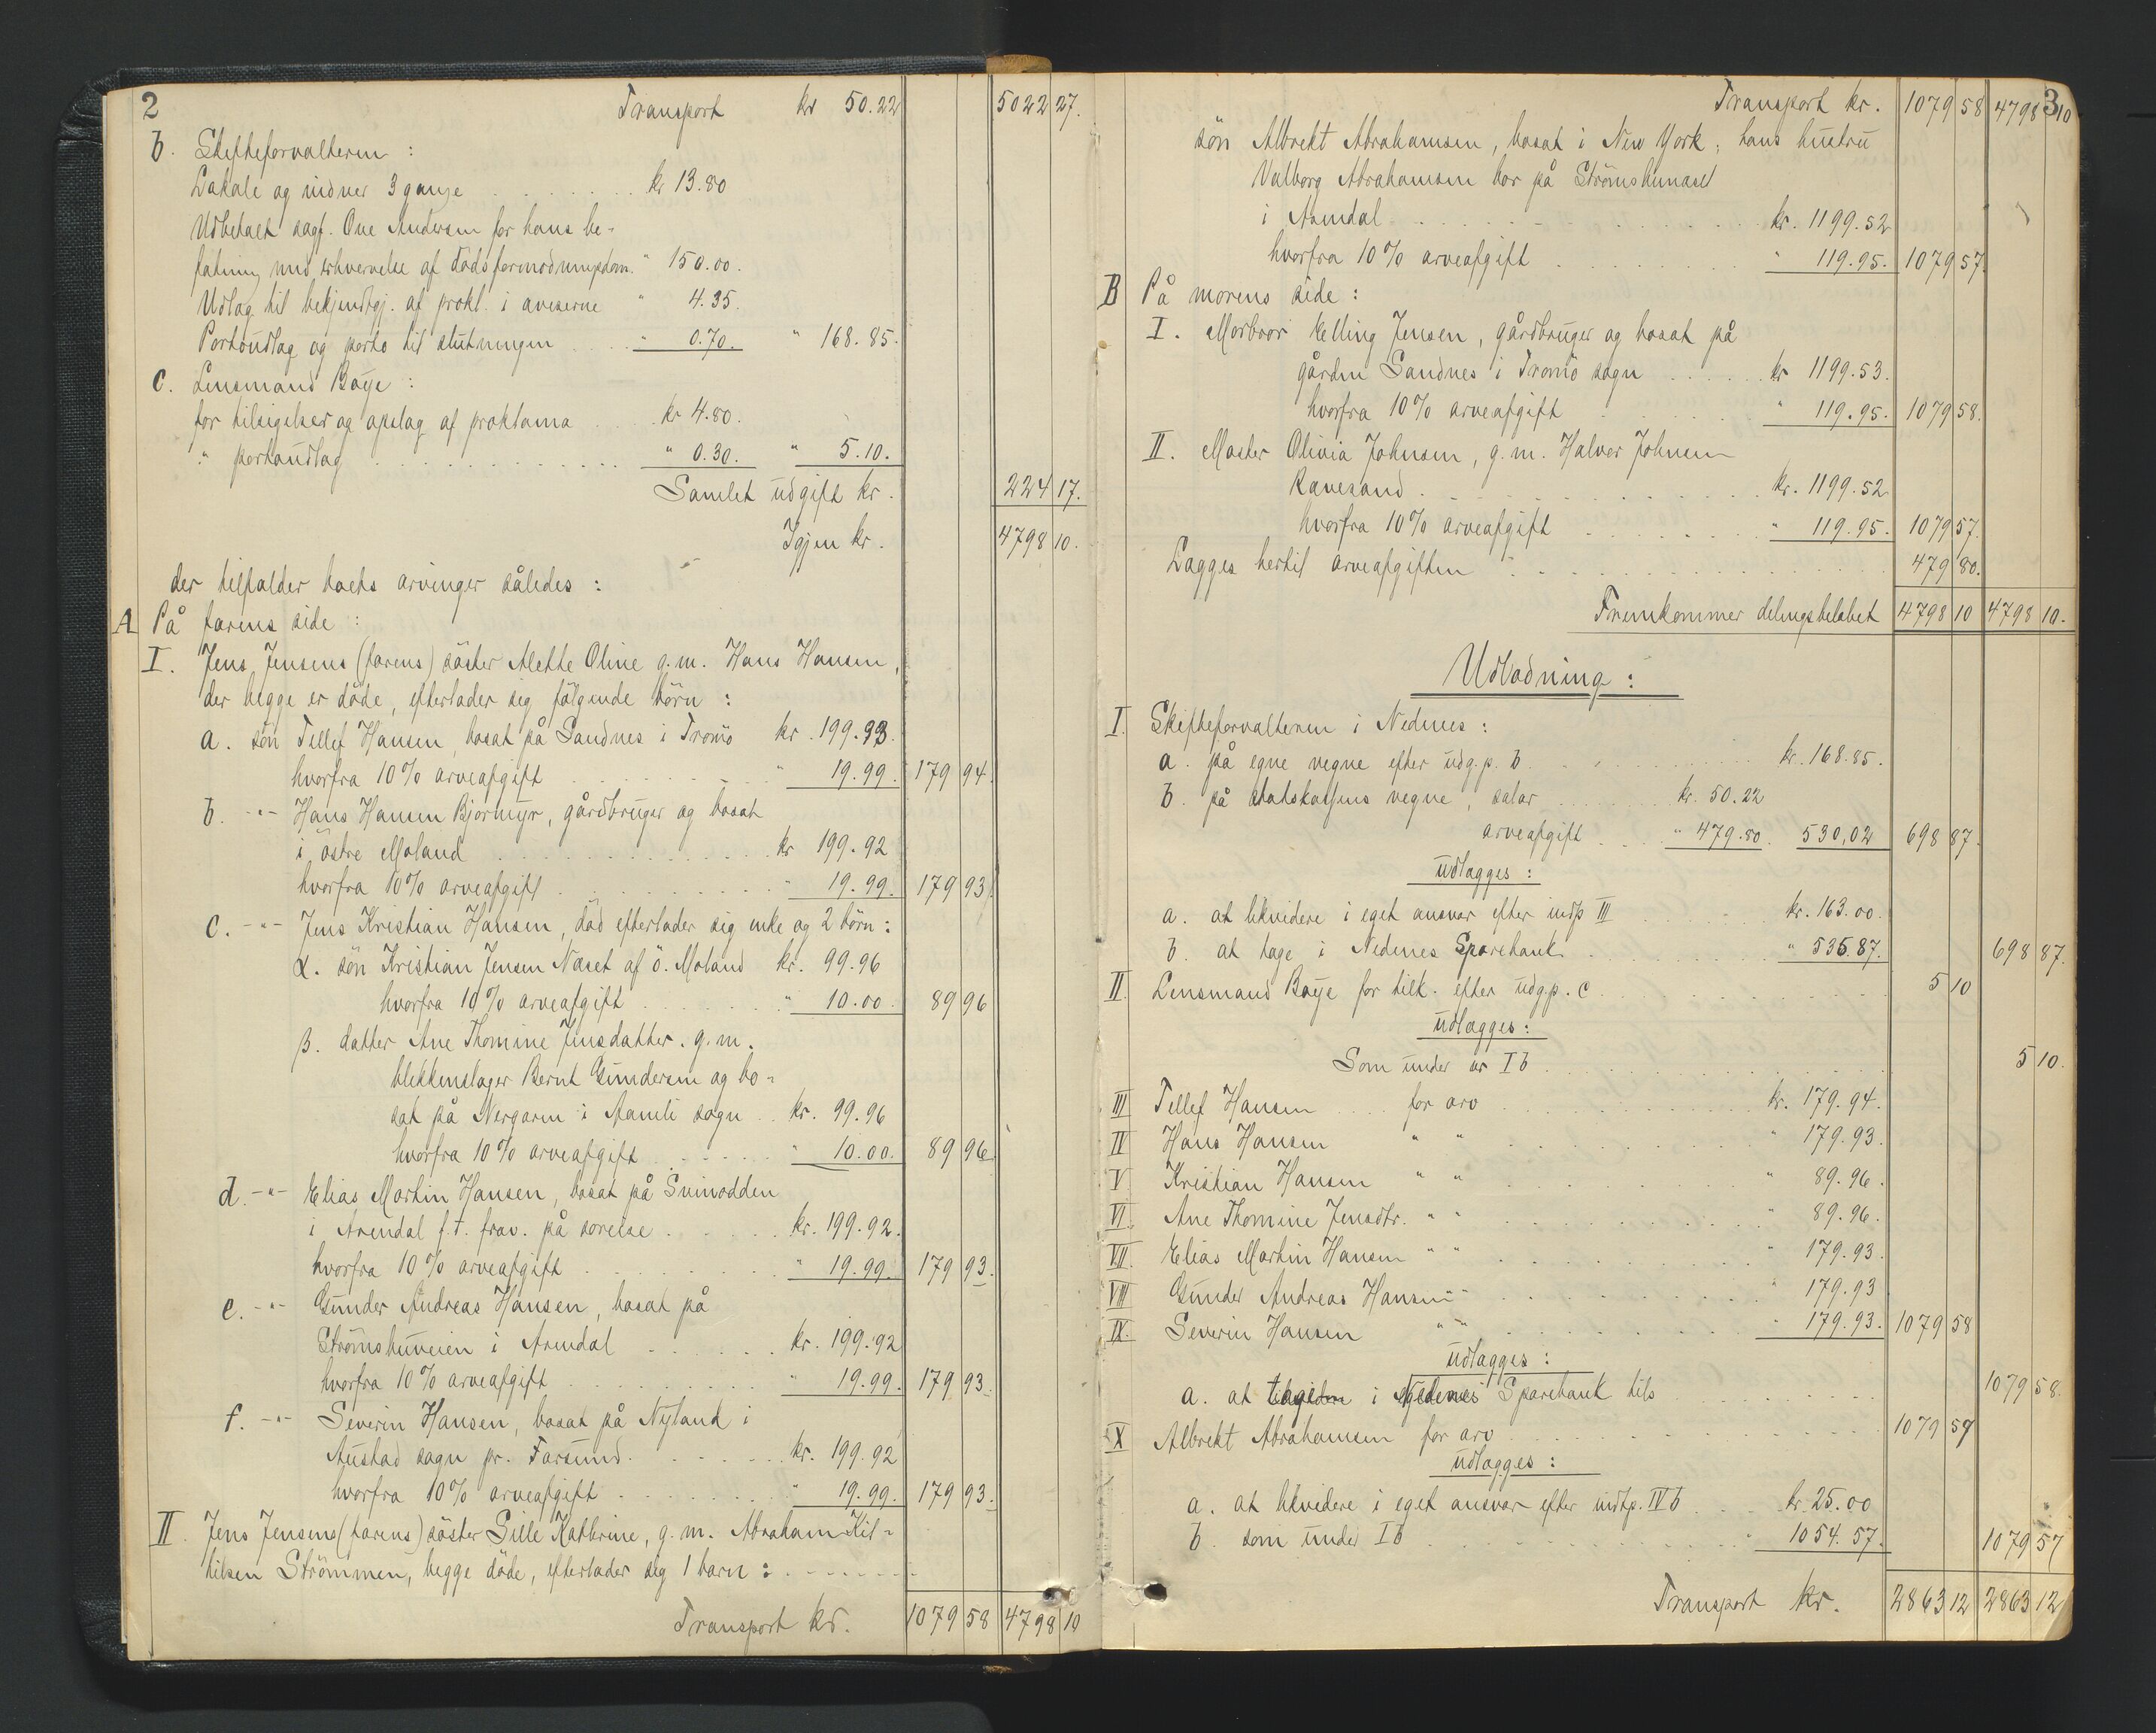 2
Transport kr 50.22 5022 27.
b. Skifteforvalteren :
Lokale og vidner 3 gange kr 13.80
Udbetalt sagf. Ove Andersen for hans be-
fatning med erhvervelse af dödsformodningsdom. " 150.00.
Udlag til bekjendtgj. af prokl. i aviserne " 4.35.
Portoudlag og porto til slutningen " 0.70. " 168.85.
c. Lensmand Böye :
for tilsigelser og opslag af proklama kr 4.80.
" portoudlag " 0.30. " 5.10.
Samlet udgift kr. 224 17.
Igjen kr. 4798 10.
der tilfalder boets arvinger således :
A På farens side :
I. Jens Jensens (farens) söster Alette Oline g.m. Hans Hansen,
der begge er döde, efterlader sig fölgende börn :
a. sön Tellef Hansen, bosat på Sandnes i Tromö kr. 199.93.
hvorfra 10% arveafgift " 19.99. 179 94.
b. -"- Hans Hansen Bjormyr, gårdbruger og bosat
i östre Moland kr 199.92
hvorfra 10% arveafgift " 19.99. 179 93.
c. -"- Jens Kristian Hansen, död efterlader sig enke og 2 börn :
α. sön Kristian Jensen Næset af ö. Moland kr. 99.96
hvorfra 10% arveafgift " 10.00. 89 96
β. datter Ane Thomine Jensdatter. g.m.
blikkenslager Bernt Gundersen og bo-
sat på Nergarn i Aamli sogn kr. 99.96
hvorfra 10% arveafgift " 10.00. 89 96.
d. -"- Elias Martin Hansen, bosat på Svinodden
i Arendal f.t. frav. på söreise kr. 199.92.
hvorfra 10% arveafgift " 19.99. 179 93.
e. -"- Gunder Andreas Hansen, bosat på
Strömsbuveien i Arendal kr. 199.92
hvorfra 10% arveafgift " 19.99. 179 93.
f. -"- Severin Hansen, bosat på Nyland i
Austad sogn pr. Farsund. kr. 199.92
hvorfra 10% arveafgift " 19.99. 179 93.
II. Jens Jensens (farens) söster Sille Kathrine, g.m. Abraham Kit-
tilsen Strömmen, begge döde, efterlader sig 1 barn :
Transport kr. 1079 58 4798 10
3
Transport kr. 1079 58 4798 10
sön Albrekt Abrahamsen, bosat i New York; hans hustru
Valborg Abrahamsen bor på Strömsbuneset
i Arendal kr. 1199.52
hvorfra 10% arveafgift " 119.95. 1079 57.
B På morens side :
I. Morbror Elling Jensen, gårdbruger og bosat på
gården Sandnes i Tromö sogn kr 1199.53.
hvorfra 10% arveafgift " 119.95. 1079 58.
II. Moster Olivia Johnsen, g.m. Halvor Johnsen
Ravesand kr. 1199.52
hvorfra 10% arveafgift " 119.95. 1079 57.
Lægges hertil arveafgiften 479 80.
Fremkommer delingsbelöbet 4798 10 4798 10.
Udlodning :
I. Skifteforvalteren i Nedenes :
a. på egne vegne efter udg.p. b. kr. 168.85.
b. på statskassens vegne, salær kr. 50.22
arveafgift " 479.80. 530,02 698 87.
udlægges :
a. at likvidere i eget ansvar efter indtp III kr. 163.00.
b. at tage i Nedenes Sparebank " 535.87. 698 87.
II. Lensmand Böye for tilk. efter udgp. c 5 10
udlægges :
Som under nr I b 5 10.
III Tellef Hansen for arv kr. 179.94.
IV Hans Hansen " " " 179.93.
V Kristian Hansen " " " 89.96.
VI. Ane Thomine Jensdtr. " " " 89.96.
VII. Elias Martin Hansen " " " 179.93.
VIII Gunder Andreas Hansen " " " 179.93
IX. Severin Hansen " " " 179.93. 1079 58
udlægges :
a. at tage i Nedenes Sparebank tils 1079 58.
X Albrekt Abrahamsen for arv 1079 57
udlægges :
a. at likvidere i eget ansvar efter indtp. IV b kr. 25.00
b. som under I b " 1054.57. 1079 57
Transport kr. 2863 12 2863 12